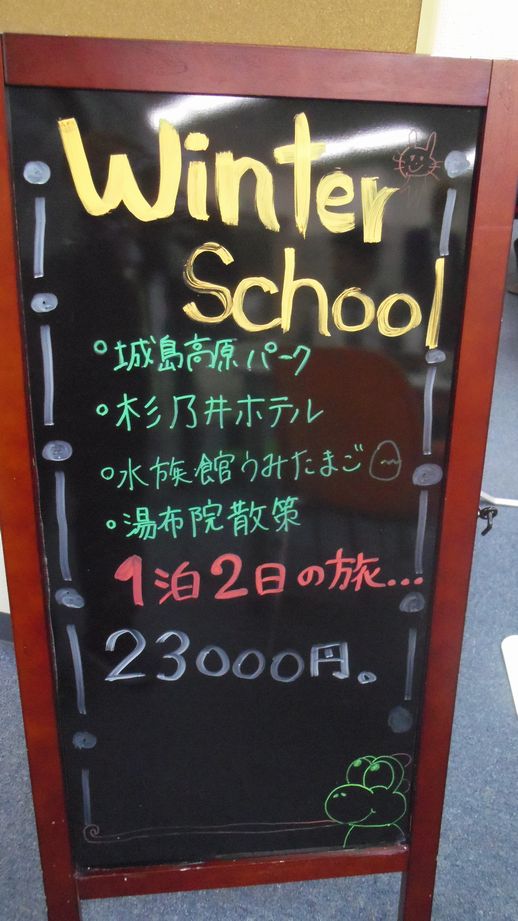 Winter
School
○城島高原パーク
○杉乃井ホテル
○水族館うみたまご
○湯布院散策
1泊2日の旅...
23000円。